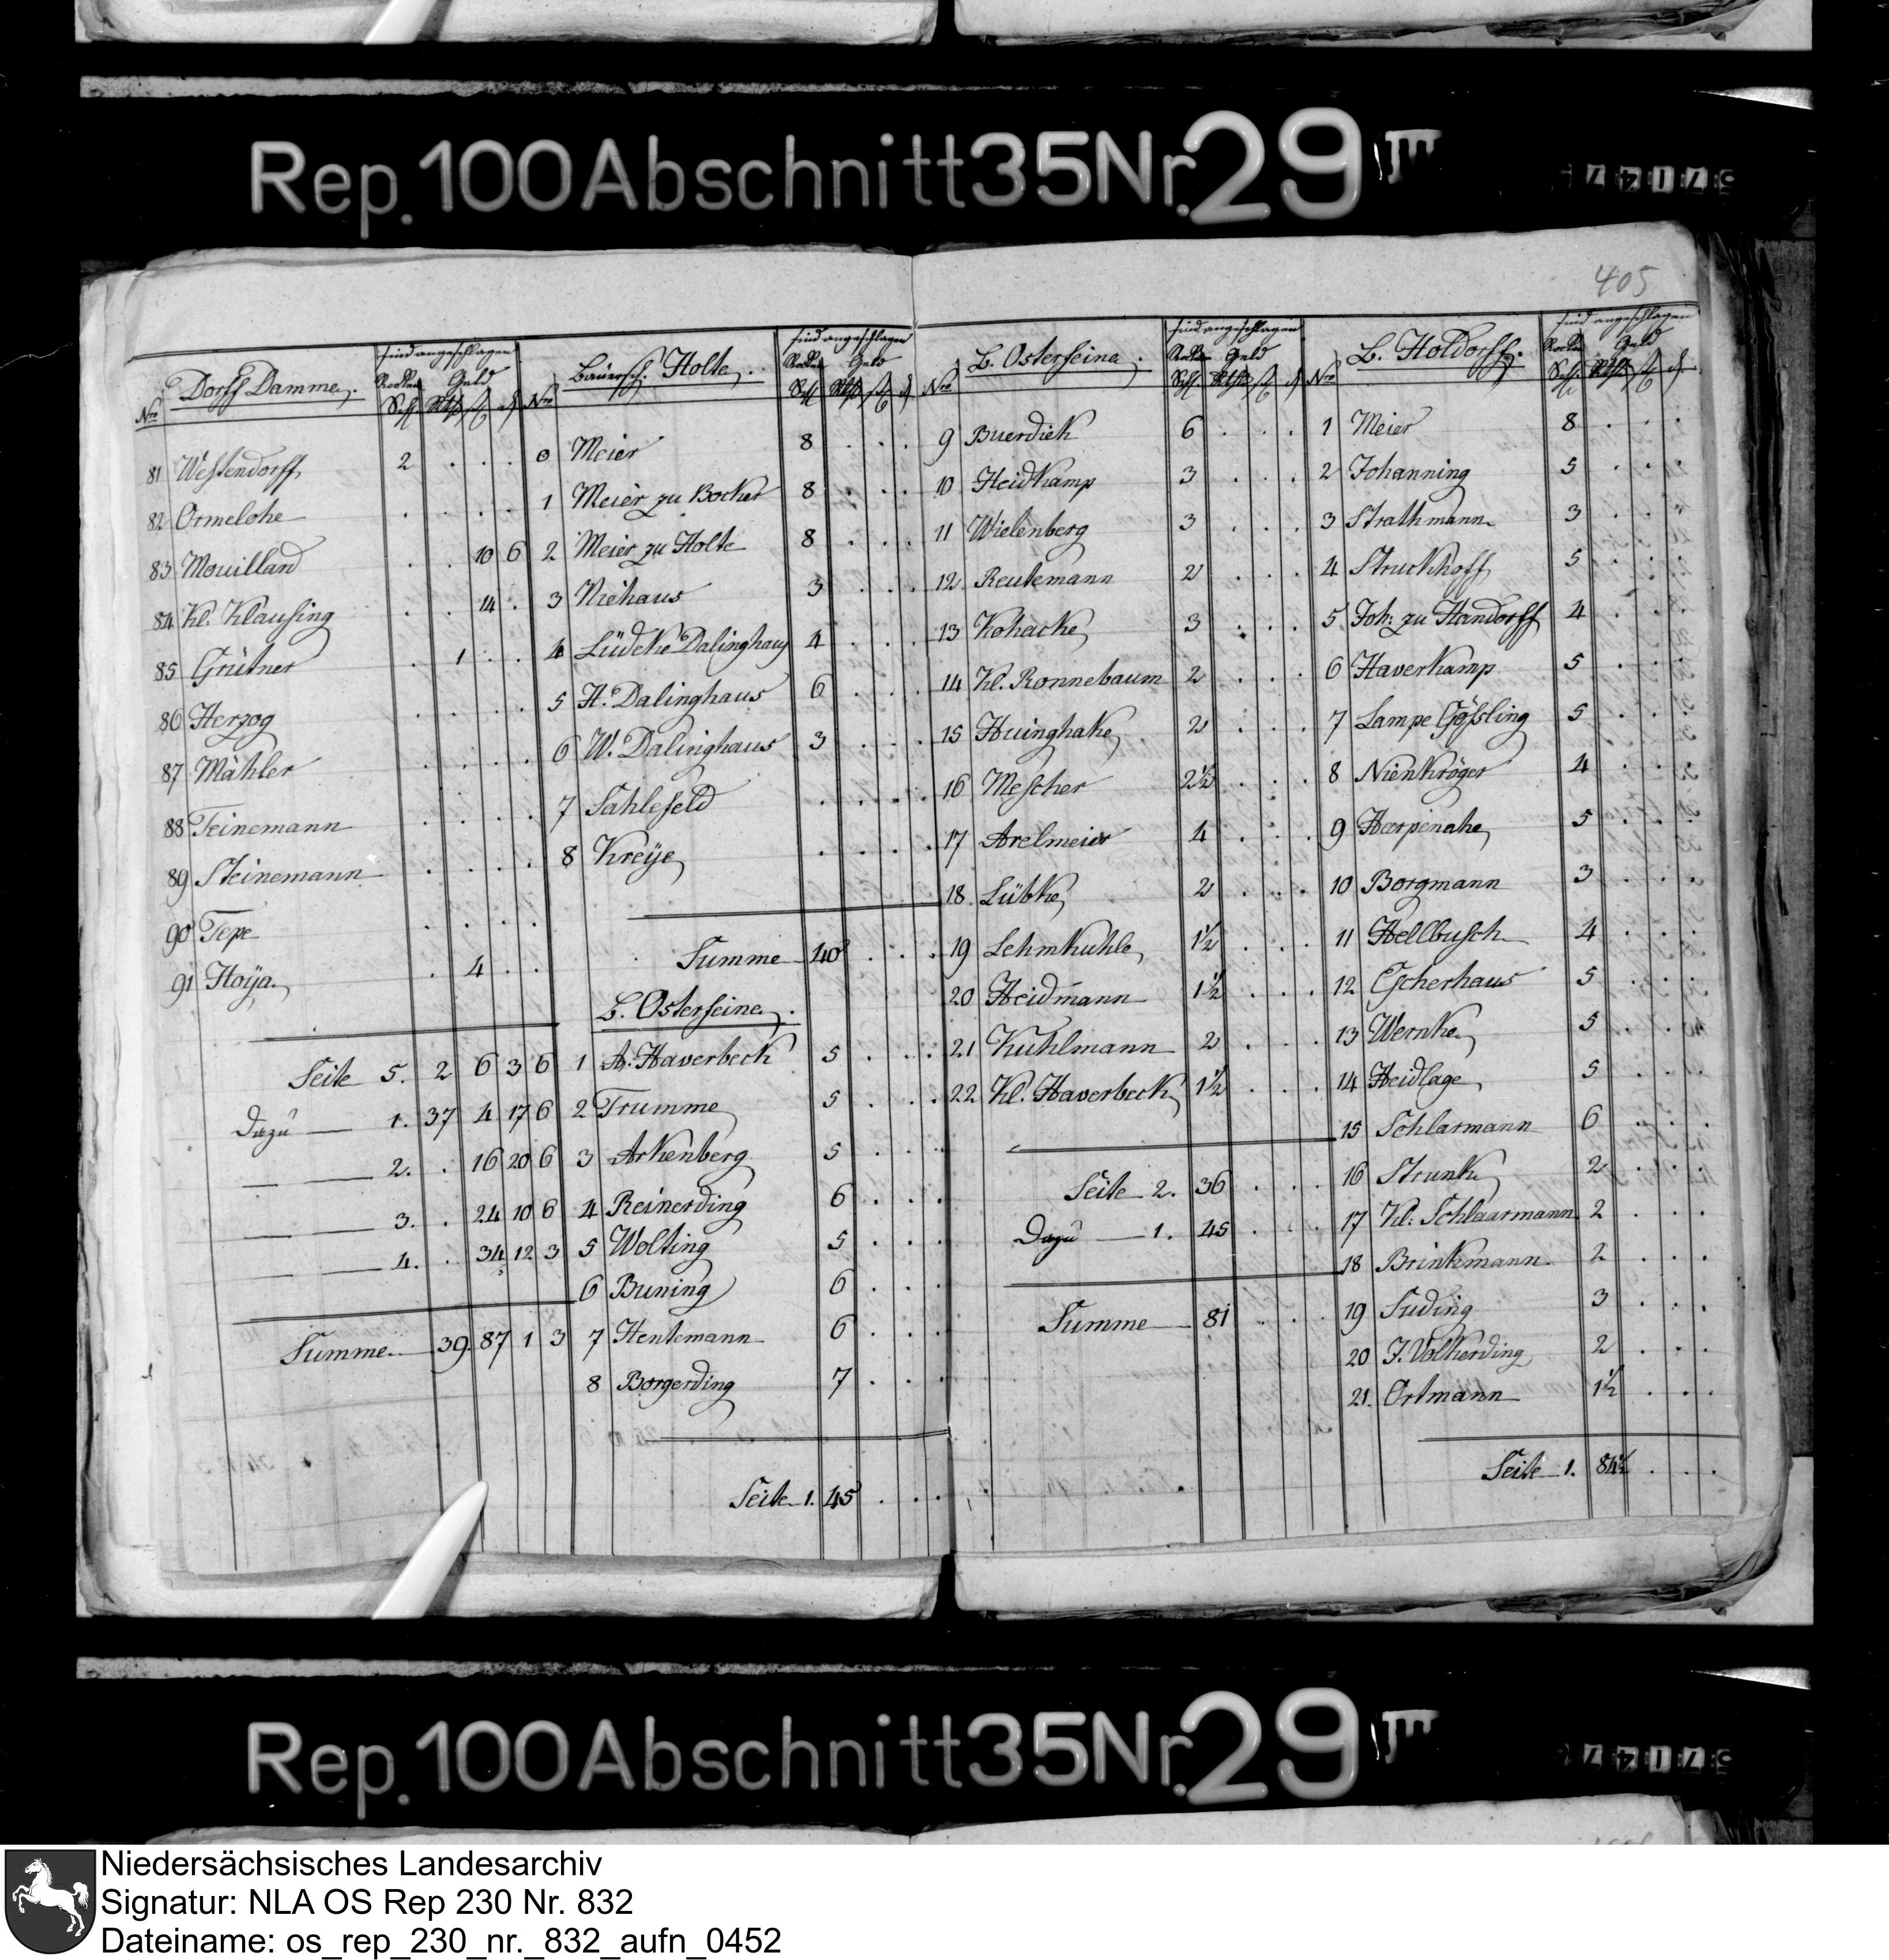 Rep. 100 Abschnitt 35 Nr. 29 III
405
sind angeschlagen
Dorff Damme.
Rocken Geld
Nro
81 Westendorff 2 . . .
82 Ormelohe . . . .
83 Mouillard . . 10 6
84 Kl. Klausing . . 14 .
85 Grütner . 1 . .
86 Herzog . . . .
87 Mähler . . . .
88 Teinemann . . . .
89 Steinemann . . . .
90 Tepe . . . .
91 Hoÿa. . 4 . .
Seite 5. 2 6 3 6
Dazu — 1. 37 4 17 6
— — 2. . 16 20 6
— — 3. . 24 10 6
— — 4. . 34 12 3
Summe — 39. 87 1 3
sind angeschlagen
Bauersch. Holte.
Rocken Geld
Nro
0 Meier 8 . . .
1 Meier zu Bocker 8 . . .
2 Meier zu Holte 8 . . .
3 Niehaus 3 . . .
4 Lüdeke Dalinghaus 4 . . .
5 H. Dalinghaus 6 . . .
6 W. Dalinghaus 3 . . .
7 Sahlefeld . . . .
8 Kreÿe . . . .
Summe 40 . . .
B. Osterfeine.
1 A. Haverbeck 5 . . .
2 Trumme 5 . . .
3 Arkenberg 5 . . .
4 Reinerding 6 . . .
5 Wolting 5 . . .
6 Buning 6 . . .
7 Hentemann 6 . . .
8 Borgerding 7 . . .
Seite 1. 45 . . .
sind angeschlagen
B. Osterfeine.
Rocken Geld
Nro
9 Buerdiek 6 . . .
10 Heidkamp 3 . . .
11 Wielenberg 3 . . .
12 Reutemann 2 . . .
13 Kohacke 3 . . .
14 Kl. Ronnebaum 2 . . .
15 Huinghake 2 . . .
16 Mescher 2½ . . .
17 Arelmeier 4 . . .
18 Lübke 2 . . .
19 Lehmkuhle 1½ . . .
20 Heidmann 1½ . . .
21 Kuhlmann 2 . . .
22 Kl. Haverbeck 1½ . . .
Seite 2. 36 . . .
Dazu — 1. 45 . . .
Summe — 81 . . .
sind angeschlagen
B. Holdorff.
Rocken Geld
Nro
1 Meier 8 . . .
2 Johanning 5 . . .
3 Strathmann 3 . . .
4 Struckhoff 5 . . .
5 Joh: zu Handorff 4 . . .
6 Haverkamp 5 . . .
7 Lampe Gößling 5 . . .
8 Nienkröger 4 . . .
9 Harpenahe 5 . . .
10 Borgmann 3 . . .
11 Hellbusch 4 . . .
12 Escherhaus 5 . . .
13 Wernke 5 . . .
14 Heidlage 5 . . .
15 Schlarmann 6 . . .
16 Strunk 2 . . .
17 Kl: Schlaarmann 2 . . .
18 Brinkmann 2 . . .
19 Suding 3 . . .
20 J. Volkerding 2 . . .
21. Ortmann 1½ . . .
Seite 1. 84½ . . .
Rep. 100 Abschnitt 35 Nr. 29 III
Niedersächsisches Landesarchiv
Signatur: NLA OS Rep 230 Nr. 832
Dateiname: os_rep_230_nr._832_aufn_0452